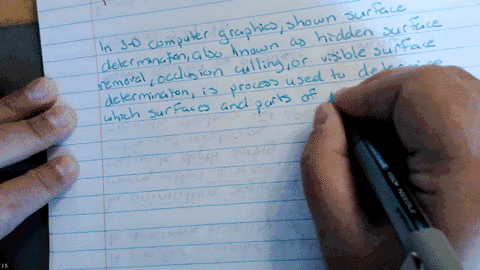 In 3-D computer graphics, shown surface
determination, also known as hidden surface
removal, occlusion culling, or visible surface
determination, is process used to determine
which surfaces and parts of